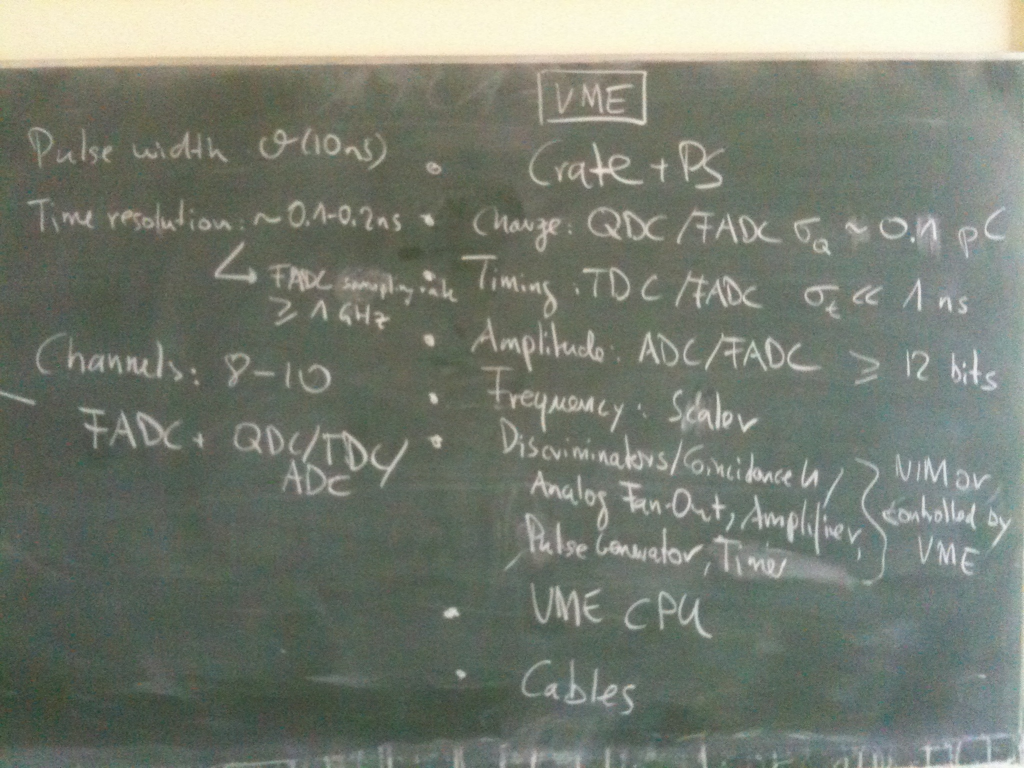 VME
Pulse width O(10ns)
Time resolution: ~ 0.1-0.2ns
↳ FADC sampling rate
≥ 1 GHz
Channels: 8-10
FADC + QDC/TDC/
ADC
• Crate + PS
• Charge: QDC/FADC σ_Q ~ 0.1 pC
• Timing: TDC/FADC σ_t << 1 ns
• Amplitude: ADC/FADC ≥ 12 bits
• Frequency: Scaler
• Discriminators/Coincidence U,
Analog Fan-Out, Amplifier,
Pulse Generator, Timer
} NIM or
controlled by
VME
• VME CPU
• Cables